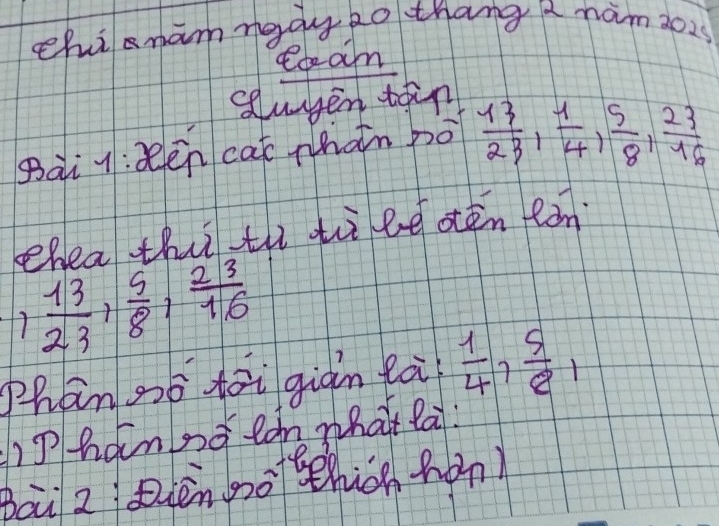 Thứ năm ngày 20 tháng 2 năm 2025
Toán
Luyện tập
Bài 1: Xếp các phân số 13/23, 1/4, 5/8, 23/16
theo thứ tự từ bé đến lớn:
, 13/23, 5/8, 23/16
Phân số tối giản là: 1/4, 5/8,
) Phân số lớn nhất là:
Bài 2: Điền số thích hợp